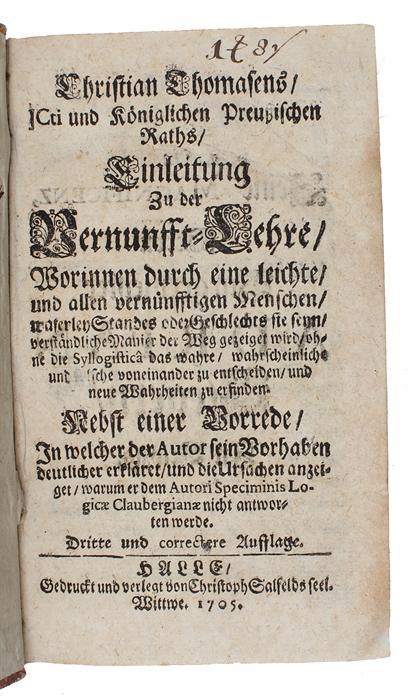 Christian Thomasens/
JCti und Königlichen Preußischen
Raths/
Einleitung
Zu der
Vernunfft-Lehre/
Worinnen durch eine leichte/
und allen vernünfftigen Menschen/
waserley Standes oder Geschlechts sie seyn/
verständliche Manier der Weg gezeiget wird/ oh-
ne die Syllogisticâ das wahre/ wahrscheinliche
und sche voneinander zu entscheiden/ und
neue Wahrheiten zu erfinden.
Nebst einer Vorrede/
In welcher der Autor sein Vorhaben
deutlicher erkläret/ und die Ursachen anzei-
get/ warum er dem Autori Speciminis Lo-
gicæ Claubergianæ nicht antwor-
ten werde.
Dritte und correctere Aufflage.
HALLE/
Gedruckt und verlegt von Christoph Salfelds seel.
Wittwe. 1705.